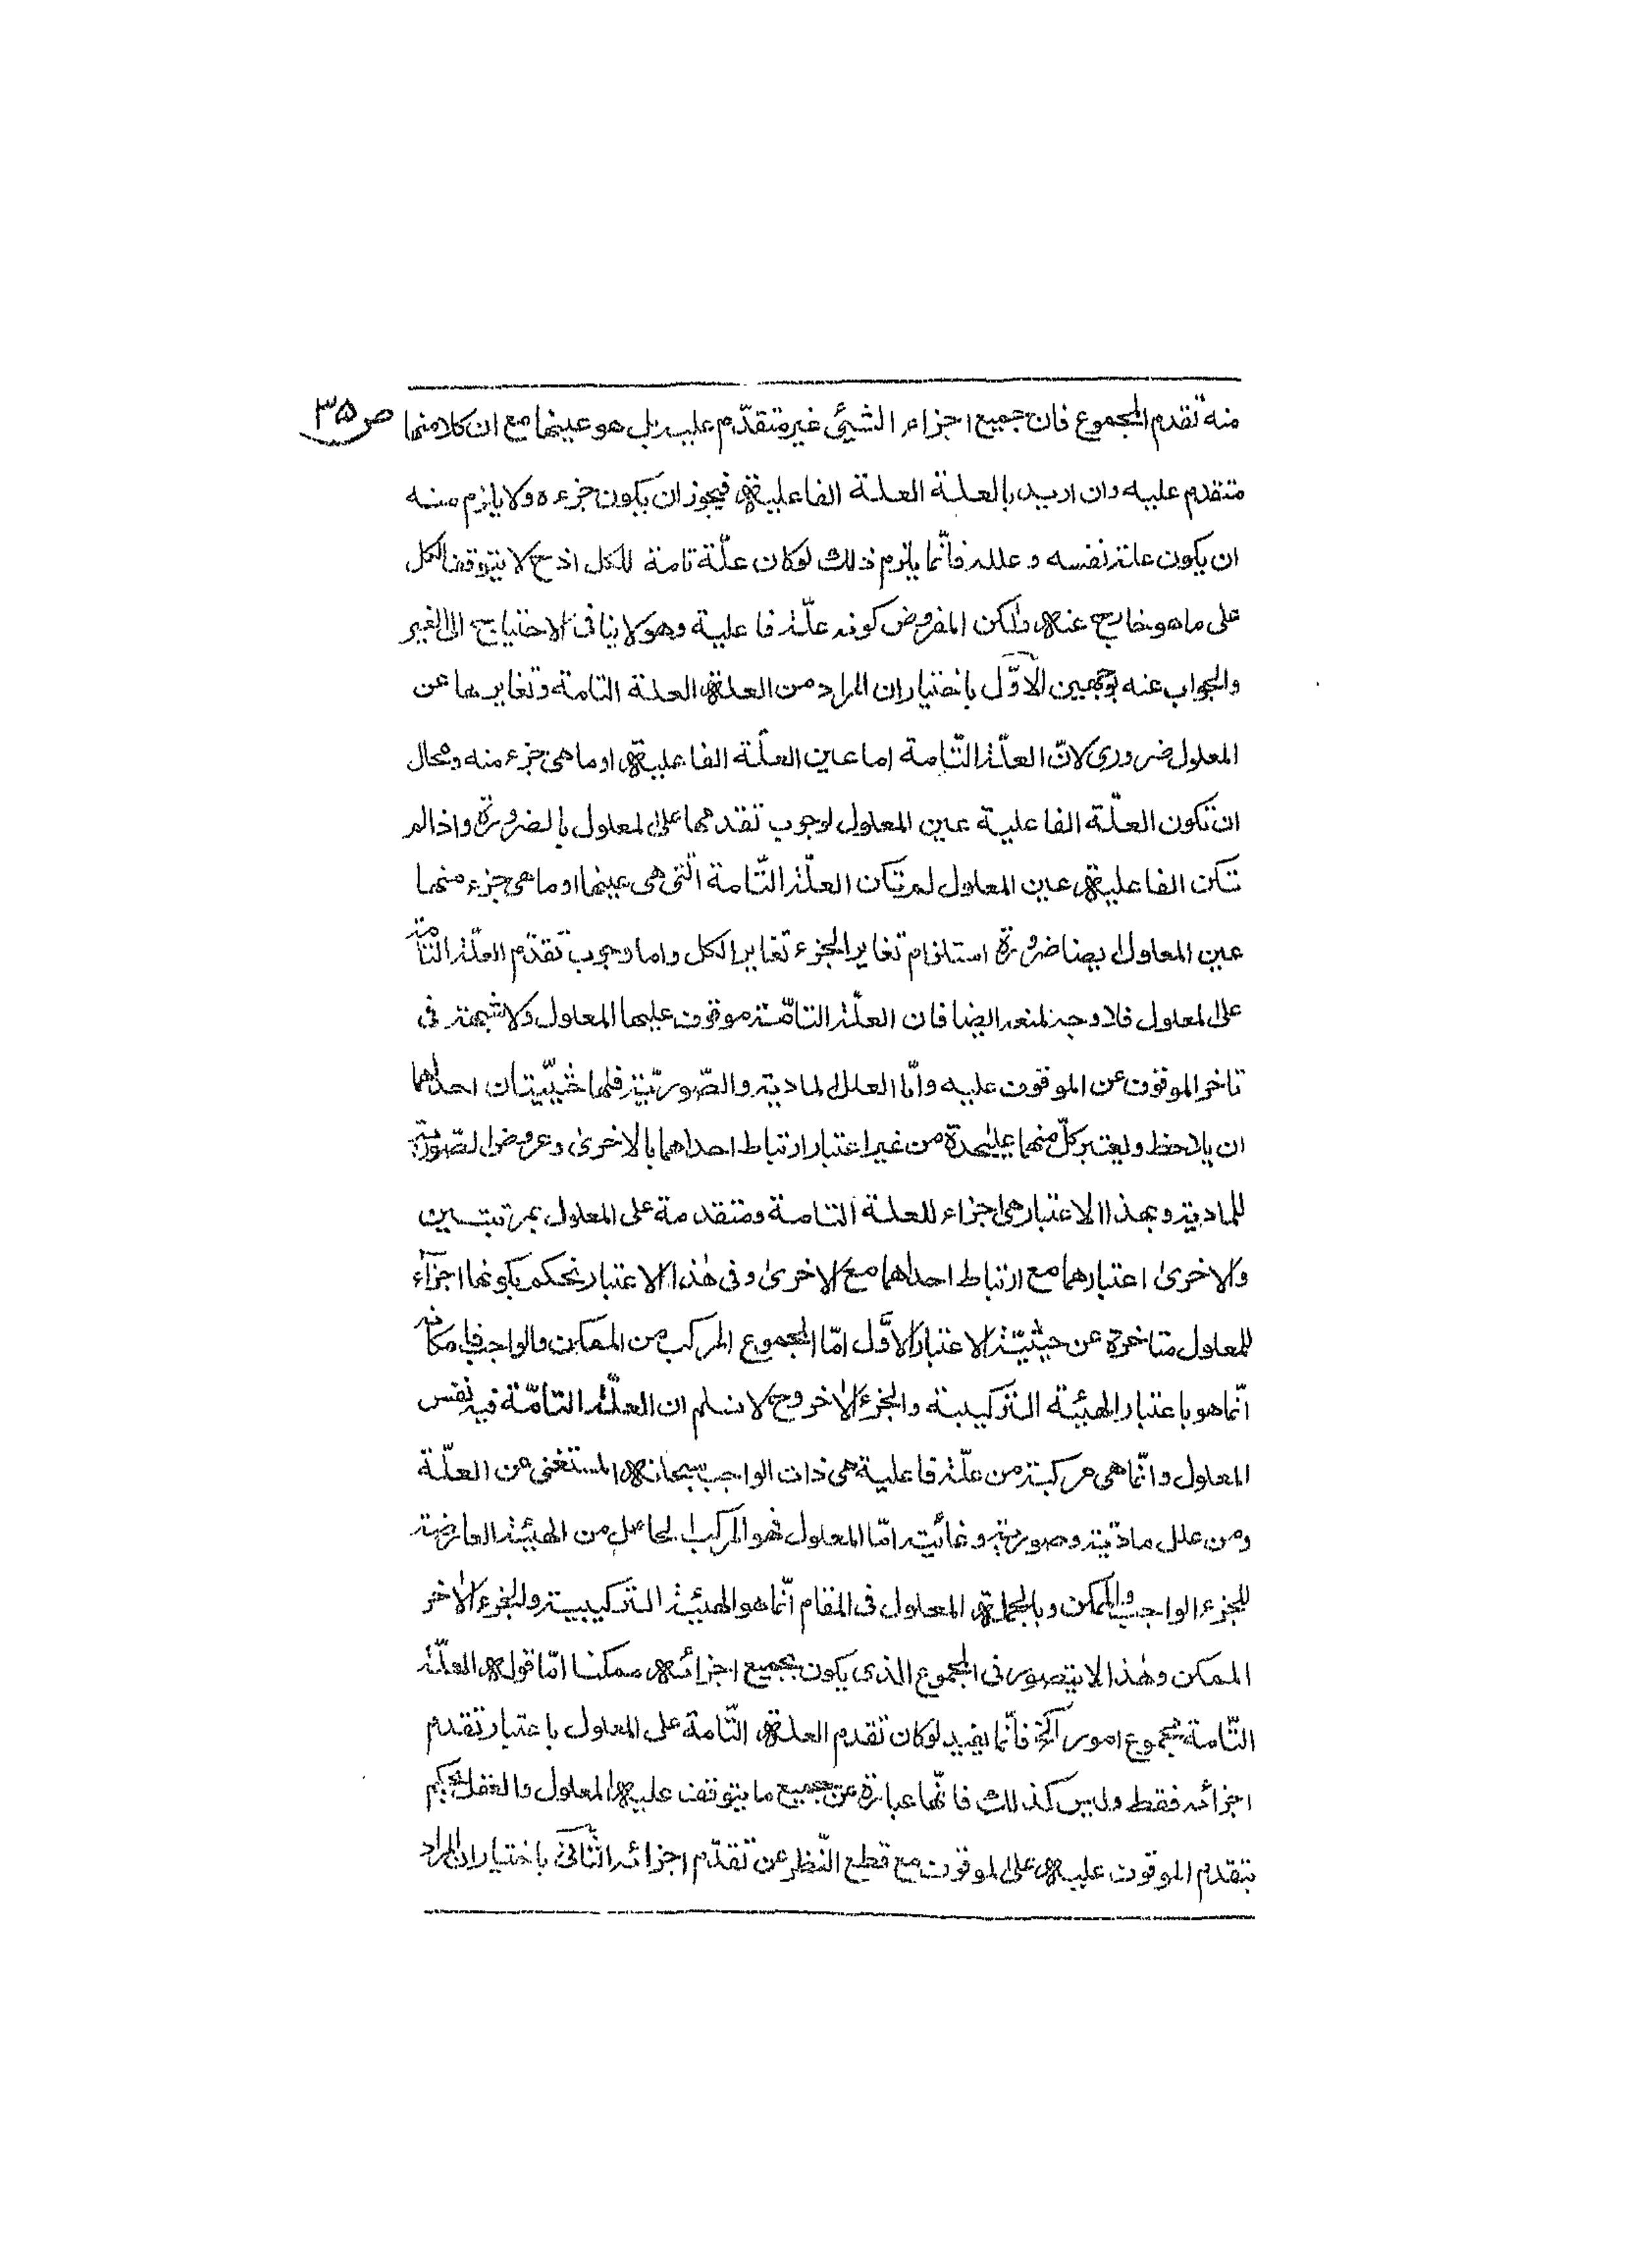 منه تقدم المجموع فان جميع اجزاء الشيئ غير متقدّم عليه بل هو عينها مع ان كلا منها ص ٣٥
متقدم عليه وان اريد بالعلة العلة الفاعلية فيجوز ان يكون جزءه ولا يلزم منه
ان يكون علة نفسه و علله فانّما يلزم ذلك لوكان علّة تامة للكل اذ ح لا يتوقف الكل
على ماهو خارج عنه ولكن المفروض كونه علّة فاعلية وهو لا ينافى الاحتياج الى الغير
والجواب عنه بوجهين الاوّل باختيار ان المراد من العلة العلة التامة وتغايرها عن
المعلول ضرورى لانّ العلّة التّامة اما عين العلّة الفاعلية او ماهى جزء منه ومحال
ان تكون العلّة الفاعلية عين المعلول لوجوب تقدمها على المعلول بالضرورة واذا لم
تكن الفاعلية عين المعلول لم تكن العلّة التّامة الّتى هى عينها او ماهى جزء منها
عين المعلول ايضا ضرورة استلزام تغاير الجزء تغاير الكل واما وجوب تقدّم العلّة التّامة
على المعلول فلا وجه لمنعه ايضا فان العلّة التامّة موقوف عليها المعلول ولا شبهة فى
تاخر الموقوف عن الموقوف عليه وامّا العلل المادية والصّوريّة فلها حيثيّتان احداهما
ان يلاحظ ويعتبر كلّ منهما عليحدة من غير اعتبار ارتباط احداهما بالاخرىٰ وعروض الصّورية
للمادية و بهذا الاعتبار هى اجزاء للعلة التامة ومتقدمة على المعلول بمرتبتين
والاخرىٰ اعتبارهما مع ارتباط احداهما مع الاخرىٰ وفى هٰذا الاعتبار نحكم بكونها اجزاء
للمعلول متاخرة عن حيثيّة الاعتبار الاوّل امّا المجموع المركب من الممكن والواجب فامكانه
انّما هو باعتبار الهيئة التركيبة والجزء الاٰخر وح لا نسلم ان العلّة التامّة فيه نفس
المعلول وانّما هى مركبة من علّة فاعلية هى ذات الواجب سبحانه المستغنى من العلّة
ومن علل مادّية وصورية وغائية امّا المعلول فهو المركب الحاصل من الهيئة العارضة
للجزء الواجب والممكن وبالجملة المعلول فى المقام انّما هو الهيئة التركيبية والجزء الاٰخر
الممكن وهٰذا لا يتصور فى المجموع الذى يكون بجميع اجزائه ممكنا امّا قوله العلّة
التّامة مجموع امور آلخ فانّما يفيد لوكان تقدم العلة التّامة على المعلول باعتبار تقدم
اجزائه فقط وليس كذلك فانّها عبارة عن جميع ما يتوقف عليه المعلول والعقل يحكم
بتقدم الموقوف عليه على الموقوف مع قطع النّظر عن تقدّم اجزائه الثّانى باختيار ان المراد